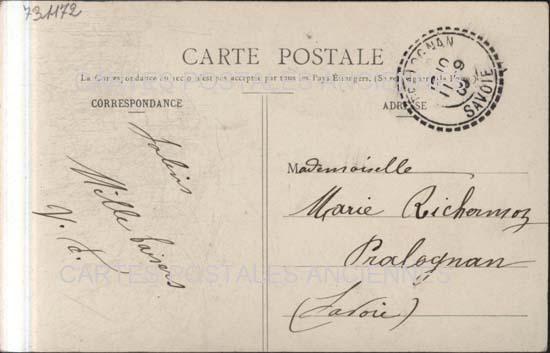 731172
CARTE POSTALE
La Correspondance au recto n'est pas acceptée par tous les Pays Étrangers. (Se renseigner à la Poste)
CORRESPONDANCE
ADRESSE
PRALOGNAN
SAVOIE
Salins
Mille baisers
Mademoiselle
Marie Richermoz
Pralognan
(Savoie)
CARTES POSTALES ANCIENNES
CARTES POSTALES ANCIENNES